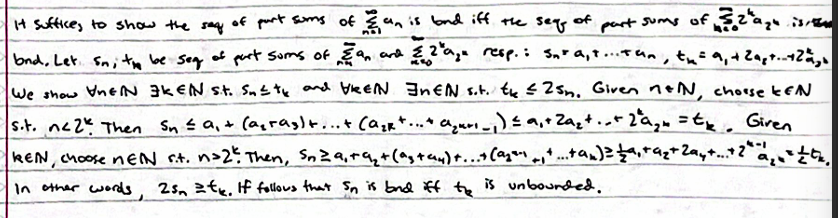 It suffices to show the seq of part sums of ∑_{n=1}^∞ a_n is bnd iff the seq of part sums of ∑_{k=0}^∞ 2^k a_{2^k} is
bnd. Let s_n, t_k be seq of part sums of ∑_{n=1}^∞ a_n and ∑_{k=0}^∞ 2^k a_{2^k} resp.: s_n = a_1 + ... + a_n, t_k = a_1 + 2a_2 + ... + 2^k a_{2^k}
We show ∀n∈ℕ ∃k∈ℕ s.t. s_n ≤ t_k and ∀k∈ℕ ∃n∈ℕ s.t. t_k ≤ 2s_n. Given n∈ℕ, choose k∈ℕ
s.t. n<2^k. Then s_n ≤ a_1 + (a_2+a_3) + ... + (a_{2^k} + ... + a_{2^{k+1}-1}) ≤ a_1 + 2a_2 + ... + 2^k a_{2^k} = t_k. Given
k∈ℕ, choose n∈ℕ s.t. n>2^k. Then, s_n ≥ a_1 + a_2 + (a_3+a_4) + ... + (a_{2^{k-1}+1} + ... + a_{2^k}) ≥ ½a_1 + a_2 + 2a_4 + ... + 2^{k-1} a_{2^k} = ½t_k.
In other words, 2s_n ≥ t_k. If follows that s_n is bnd iff t_k is unbounded.